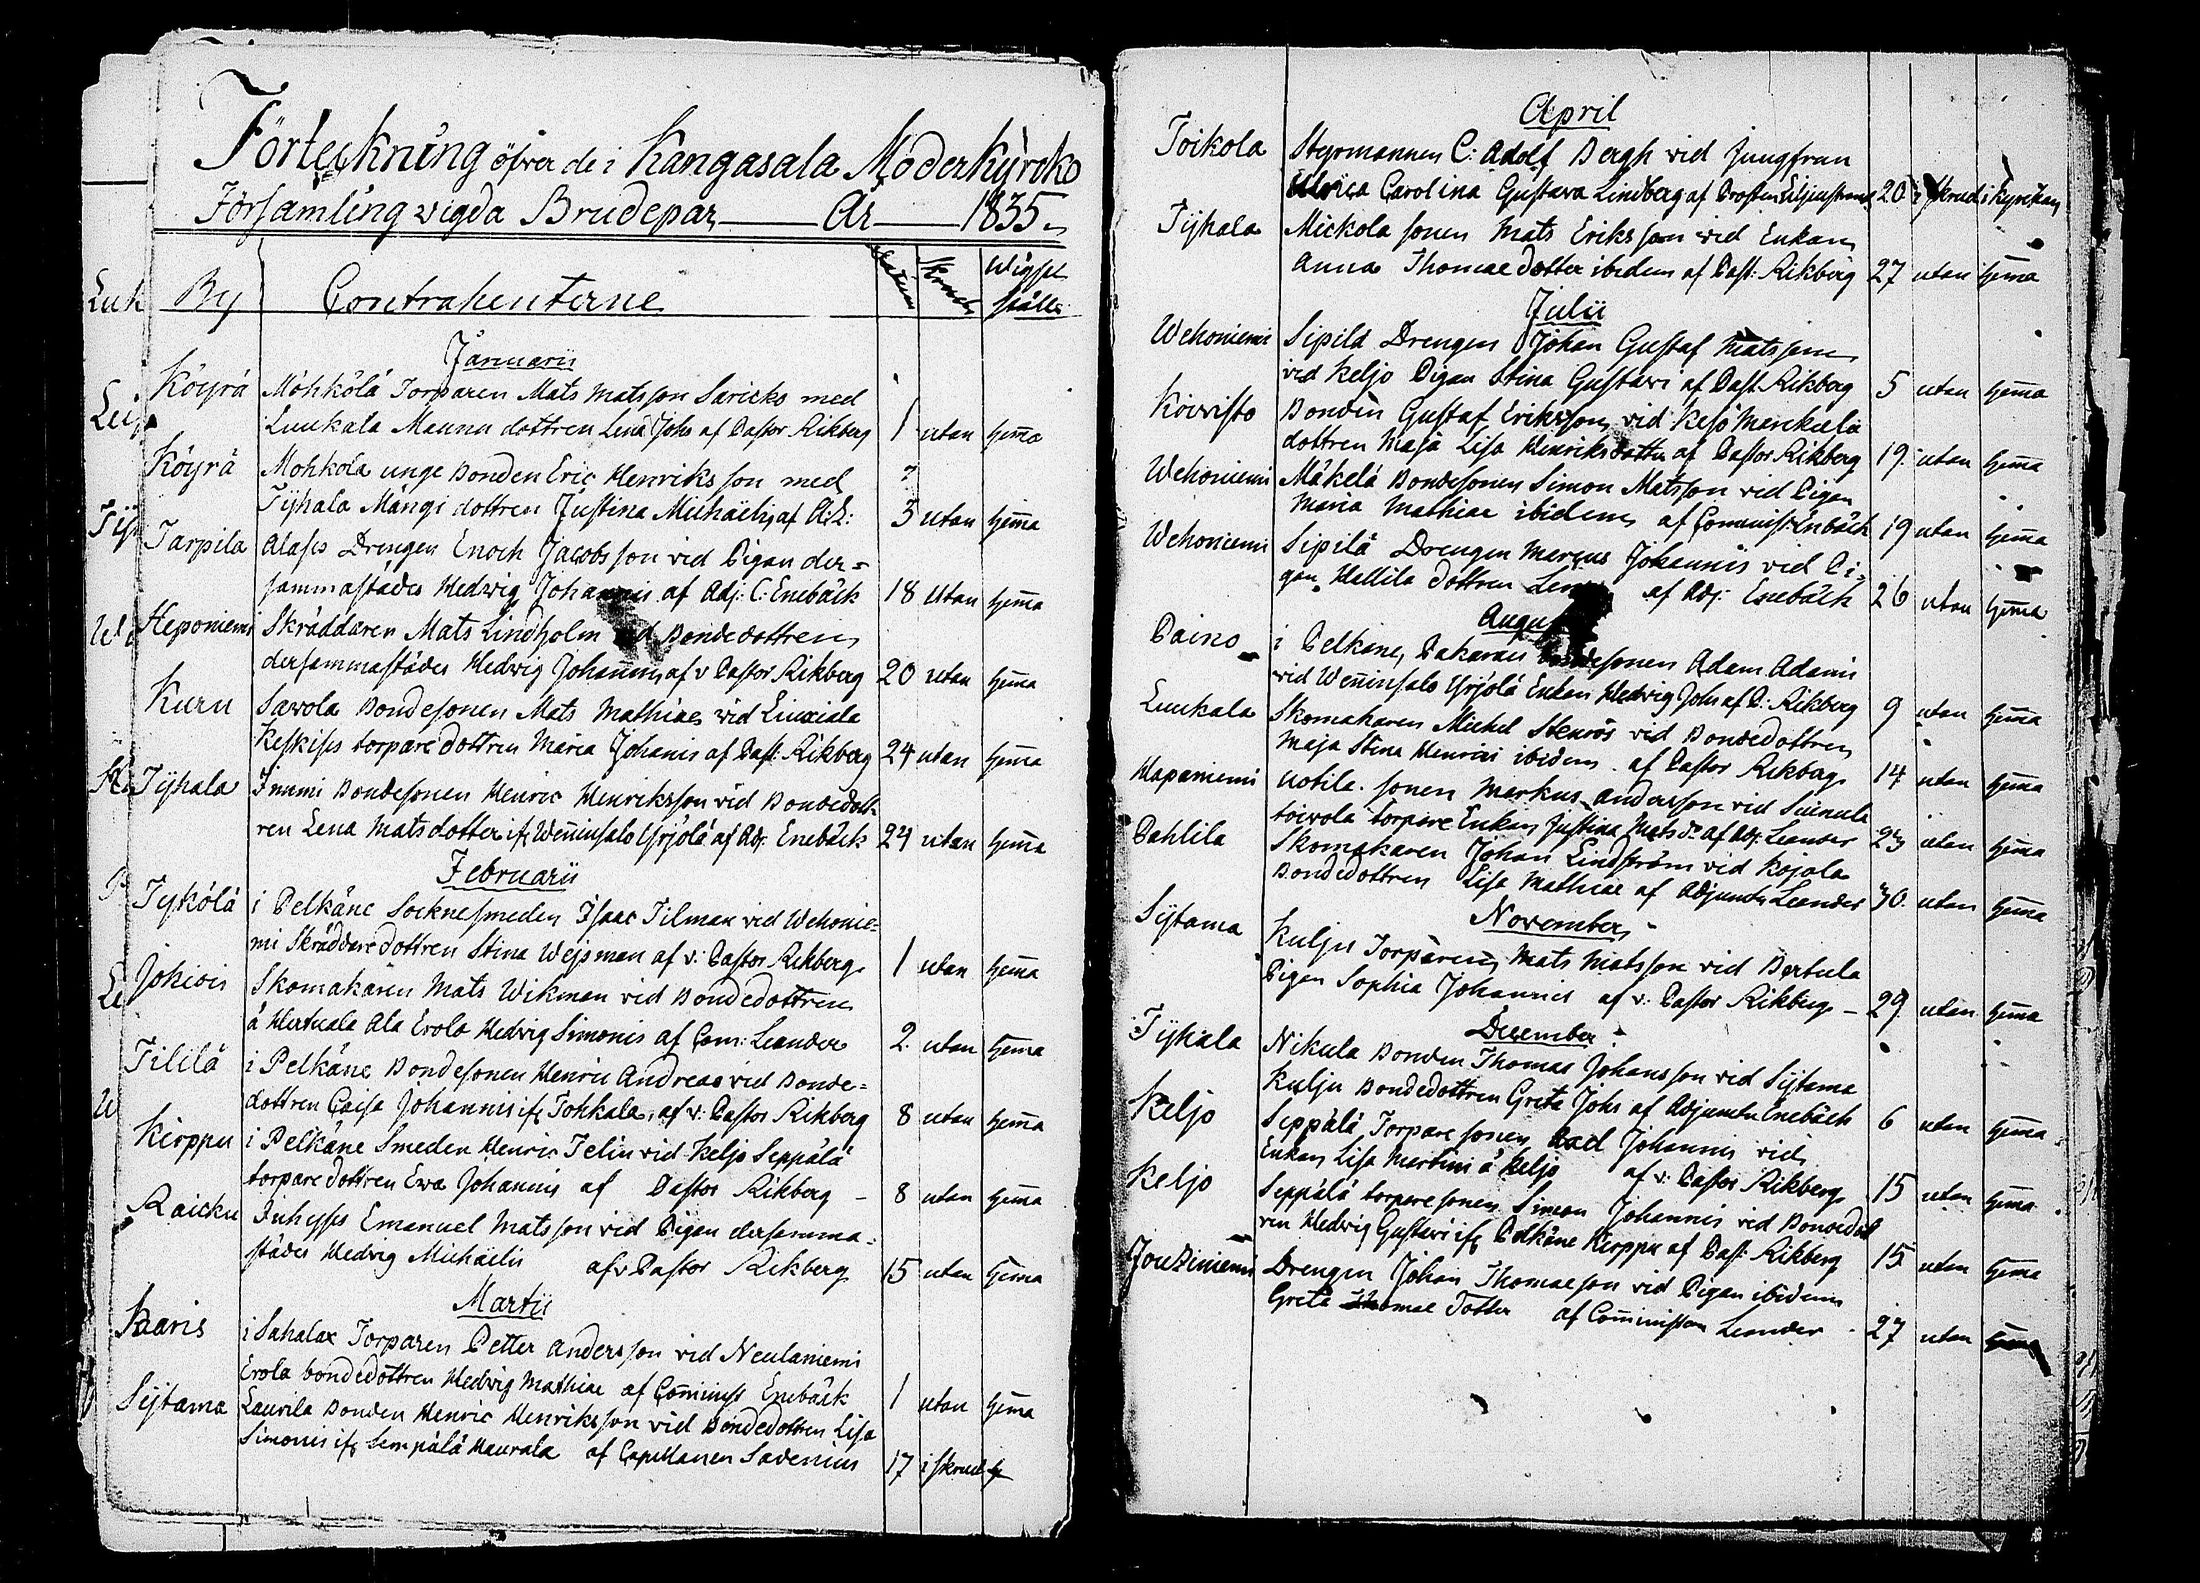 Förteckning öfver de i Kangasala Moderkyrcko
Församling vigda Brudepar År 1835.
By Contrahenterne Datum Skrud Wigsel ställe
Januarii
Köyrä Mohkölä Torparen Mats Matsson Saricks med
Luukala Maunu dottren Lena Johs af Pastor Rikberg 1 utan hemma
Köyrä Mohkola unge Bonden Eric Henriksson med
Tijhala Mängi dottren Justina Michaelis af A:L: 3 utan hemma
Tarpila Alasis Drengen Enoch Jacobsson vid Pigan der=
sammastädes Hedwig Johannis af Adj: C: Enebäck 18 utan hemma
Heponiemi Skräddaren Mats Lindholm vid Bondedottren
dersammastädes Hedwig Johannis af v Pastor Rikberg 20 utan hemma
Kuru Sawola Bondesonen Mats Mathiae vid Liuxiala
Keskises torpare dottren Maria Johanis af Past: Rikberg 24 utan hemma
Tijhala Immi Bondesonen Henric Henriksson vid Bondedott
ren Lena Matsdotter ifr Wenninsalo Yrjölä af Adj: Enebäck 24 utan hemma
Februarii
Tykölä i Pelkäne Socknesmeden Isaac Tilman vid Wehonie=
mi Skräddaredottren Stina Wejsman af v: Pastor Rikberg 1 utan hemma
Jokiois Skomakaren Mats Wikman vid Bondedottren
å Hertuala Ala Erola Hedwig Simonis af Com: Leander 2 utan hemma
Tililä i Pelkäne Bondesonen Henric Andreae vid Bonde=
dottren Caisa Johannis ifr Tohkala, af v: Pastor Rikberg 8 utan hemma
Kirppu i Pelkäne Smeden Henric Felin vid Keljo Seppälä
torpare dottren Ewa Johannis af Pastor Rikberg 8 utan hemma
Raicku Juhyses Emanuel Matsson vid Pigan dersamma=
städes Hedvig Michaelis af v Pastor Rikberg 15 utan hemma
Martii
Saaris i Sahalax Torparen Petter Andersson vid Neulaniemi
Erola bondedottren Hedvig Mathiae af Comminist Enebäck 1 utan hemma
Sijtama Laurila Bonden Henric Henriksson vid Bondedottren Lisa
Simonis ifr Lempälä Maurala af Capellanen Savenius 17 i skrud
April
Toikola Styrmannen C: Adolf Bergh vid Jungfrun
Ulrica Carolina Gustava Lindberg af Prosten 20 i skrud i kyrckan
Tijhala Mickola sonen Mats Eriksson vid Enkan
Anna Thomae dotter ibidem af Past: Rikberg 27 utan hemma
Julii
Wehoniemi Sipilä Drengen Johan Gustaf Matsson
vid Keljo Pigan Stina Gustavi af Past Rikberg 5 utan hemma
Koivisto Bonden Gustaf Eriksson vid Keso Marckula
dottren Maja Lisa Henriksdotter af Pastor Rikberg 19 utan hemma
Wehoniemi Mäkelä Bondesonen Simon Matsson vid Pigan
Maria Mathiae ibidem af Comminist: Enbäck 19 utan hemma
Wehoniemi Sipilä Drengen Marcus Johannis vid Pi=
gan Hallila dottren Lena af Adj: Enebäck 26 utan hemma
August
Paino i Pelkäne, Pakarais Bondesonen Adam Adami
vid Wenninsalo Yrjölä Enkan Hedwig Johs af P: Rikberg 9 utan hemma
Luukala Skomakaren Michel Stenros vid Bondedottren
Maja Stina Henrici ibidem af Pastor Rikberg 14 utan hemma
Hapaniemi Uotila sonen Markus Andersson vid Suinula
toivola torpare Enkan Justina Mats dr af Adj: Leander 23 utan hemma
Pahlila Skomakaren Johan Lindström vid Kojola
Bondedottren Lisa Mathiae af Adjuncten Leander 30 utan hemma
November
Sijtama Kulju Torparen Mats Matsson vid Bertula
Pigan Sophia Johannis af v: Pastor Rikberg 29 utan hemma
December
Tijhala Nikula Bonden Thomas Johansson vid Sijtama
Kulju Bondedottren Greta Johs af Adjuncten Enebäck 6 utan hemma
Keljo Seppälä Torpare sonen Johannis vid
Enkan Lisa Martini å Keljo af v: Pastor Rikberg 15 utan hemma
Keljo Seppälä torpare sonen Simeon Johannis vid Bondedott
ren Hedwig Gustavi ifr Pelkäne Kirppu af Past: Rikberg 15 utan hemma
Jouziniemi Drengen Johan Thomaeson vid Pigan ibidem
Greta Thomae Dotter af Comministern Leander 27 utan hemma